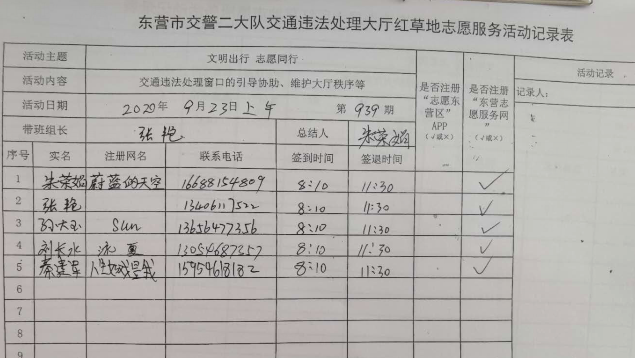 东营市交警二大队交通违法处理大厅红草地志愿服务活动记录表
活动主题 文明出行 志愿同行
活动内容 交通违法处理窗口的引导协助、维护大厅秩序等
活动日期 2020年9月23日上午 第939期
带班组长 张艳 总结人 朱荣娟
是否注册“志愿东营区”APP(√或×)
是否注册“东营志愿服务网”(√或×)
活动记录
记录人:
序号 实名 注册网名 联系电话 签到时间 签退时间
1 朱荣娟 蔚蓝的天空 16688154809 8:10 11:30 ✓
2 张艳 13406117522 8:10 11:30 ✓
3 孙大玉 Sun 13656477356 8:10 11:30 ✓
4 刘长水 泳夏 13054687357 8:10 11:30 ✓
5 秦建军 15954618182 8:10 11:30 ✓
6
7
8
9